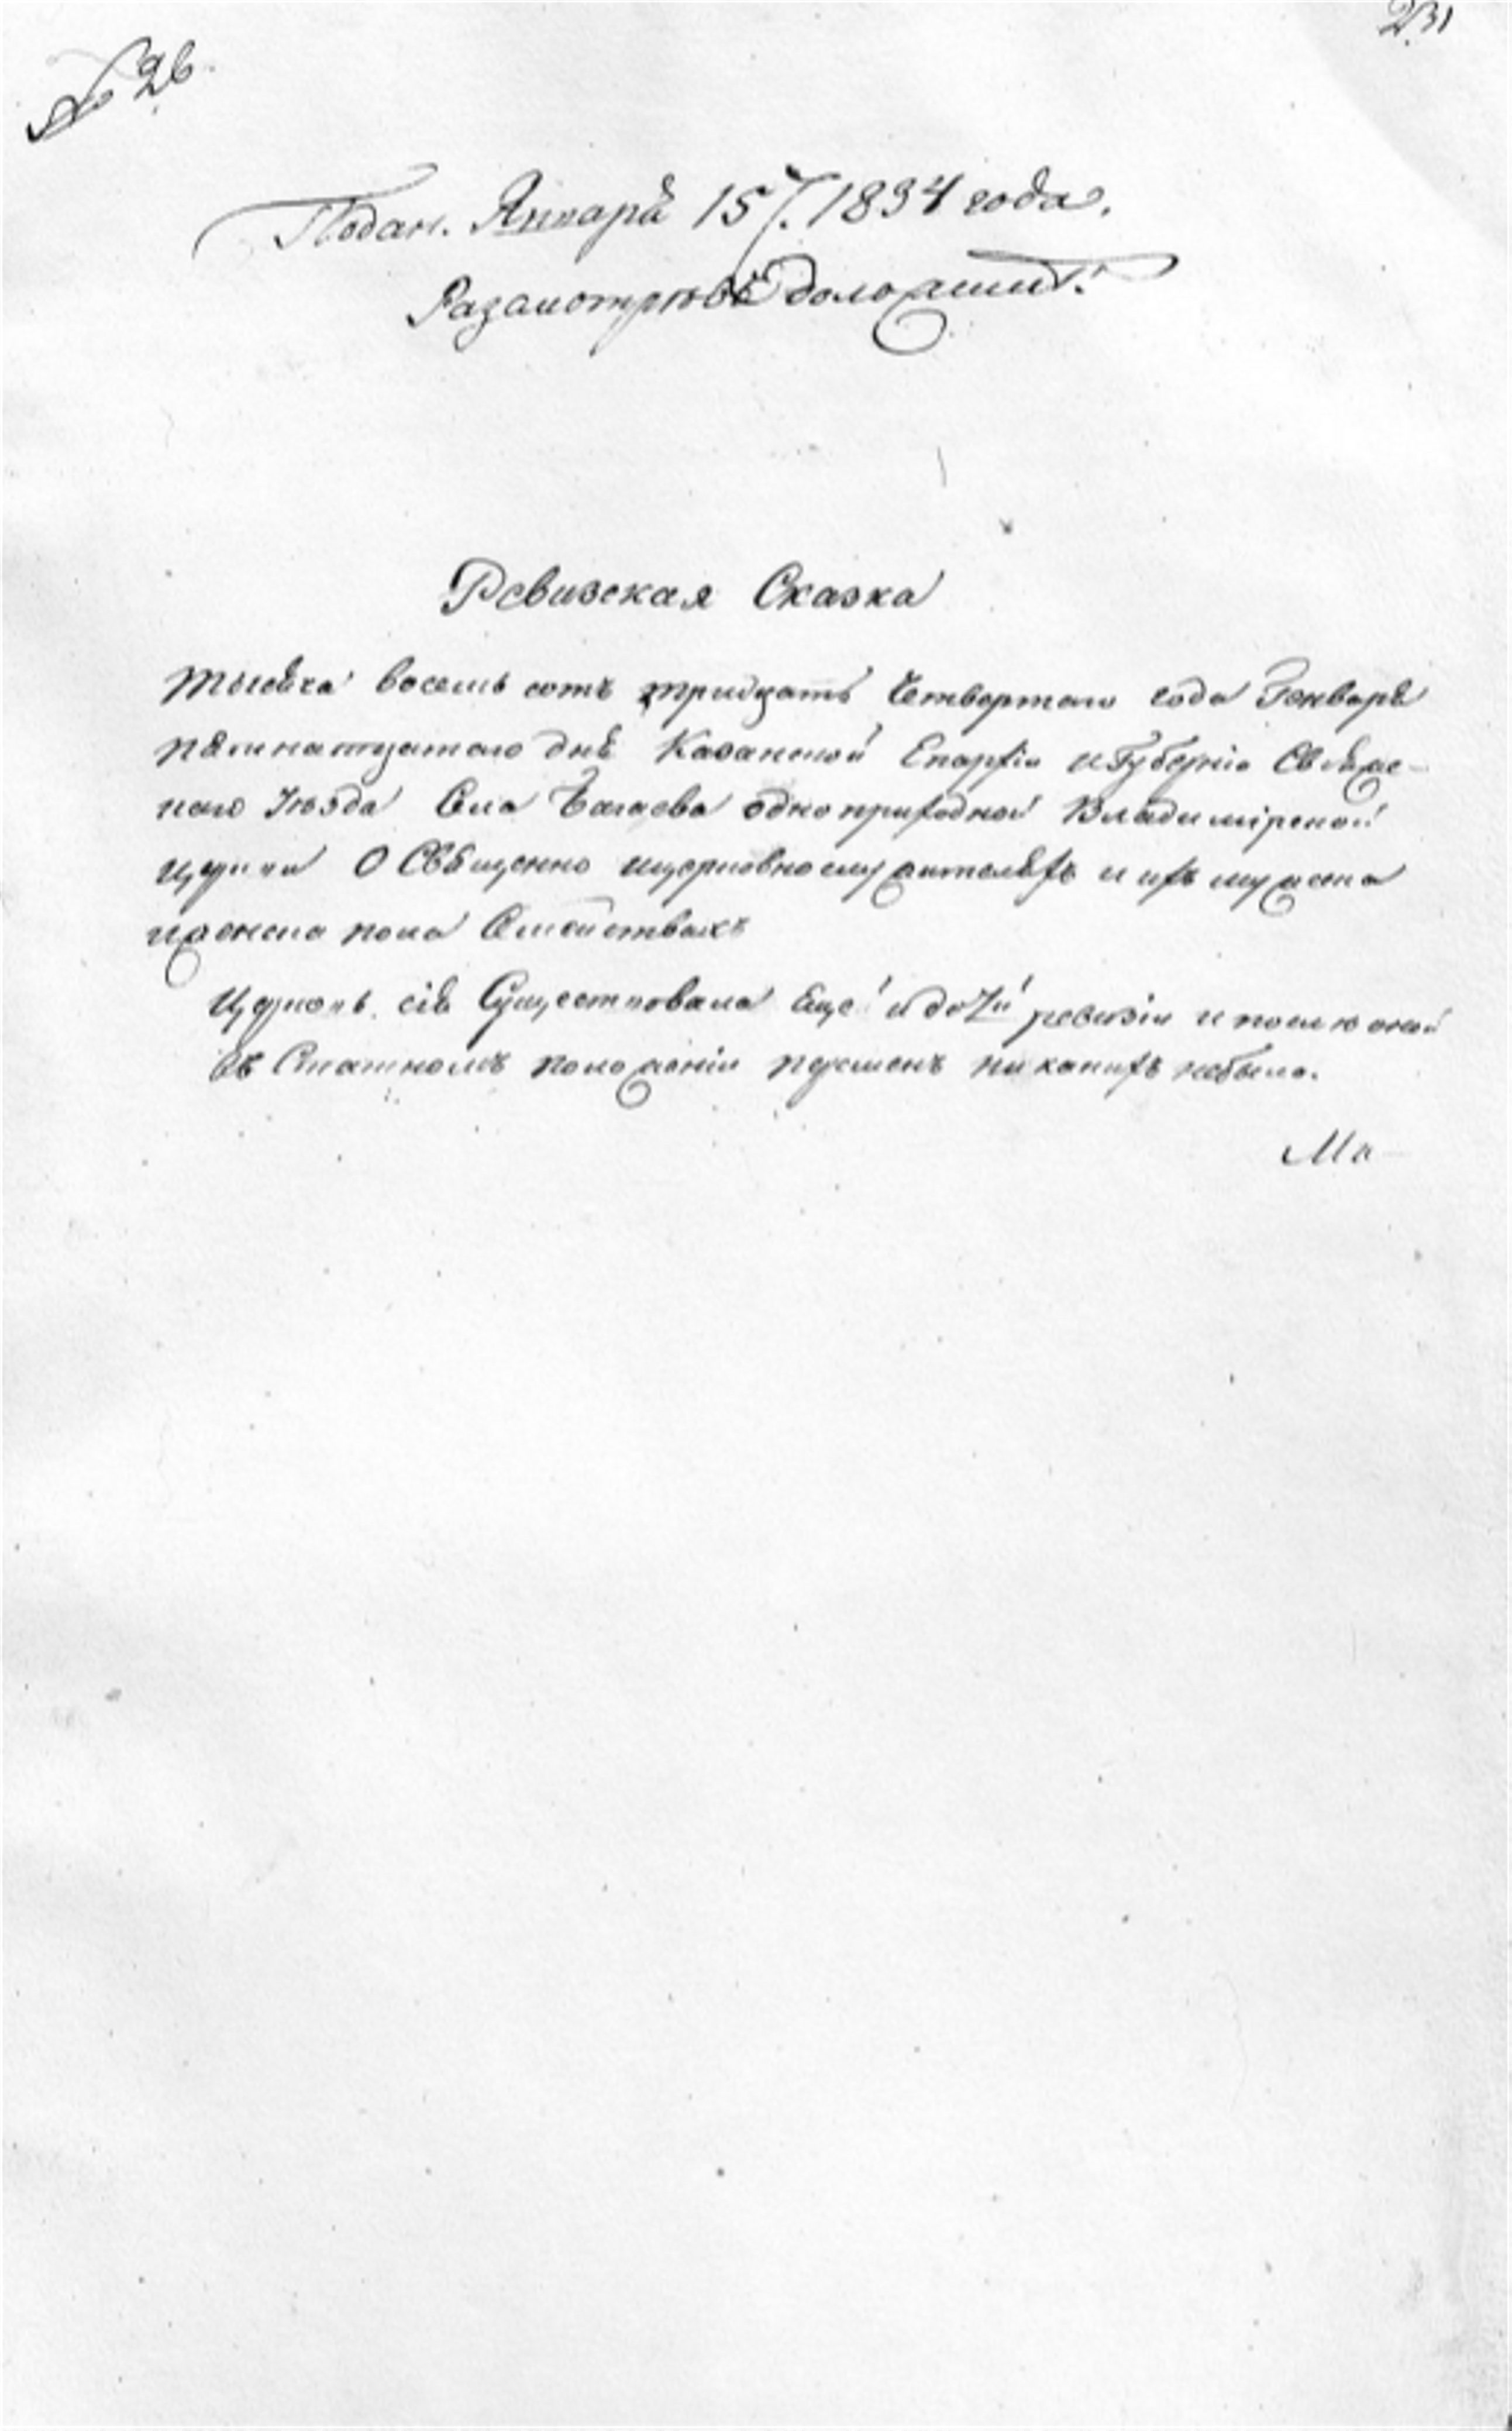 231
№ 26.
Подан. Января 15/. 1834 года.
Разсмотрѣвъ доложить.
Ревизская Сказка
Тысяча восемь сотъ тридцать Четвертаго года Генваря
пятнатцатаго дня Казанской Епархіи и Губерніи Свіяжс-
каго Уѣзда Села Багаева одноприходной Владимірской
церкви О Священно ицерковнослужителяхъ и ихъ мужеска
иженска пола Семействахъ
Церковь сія Существовала Еще и до 7й ревизіи и после оной
Въ Статномъ положеніи перменъ никакихъ небыло.